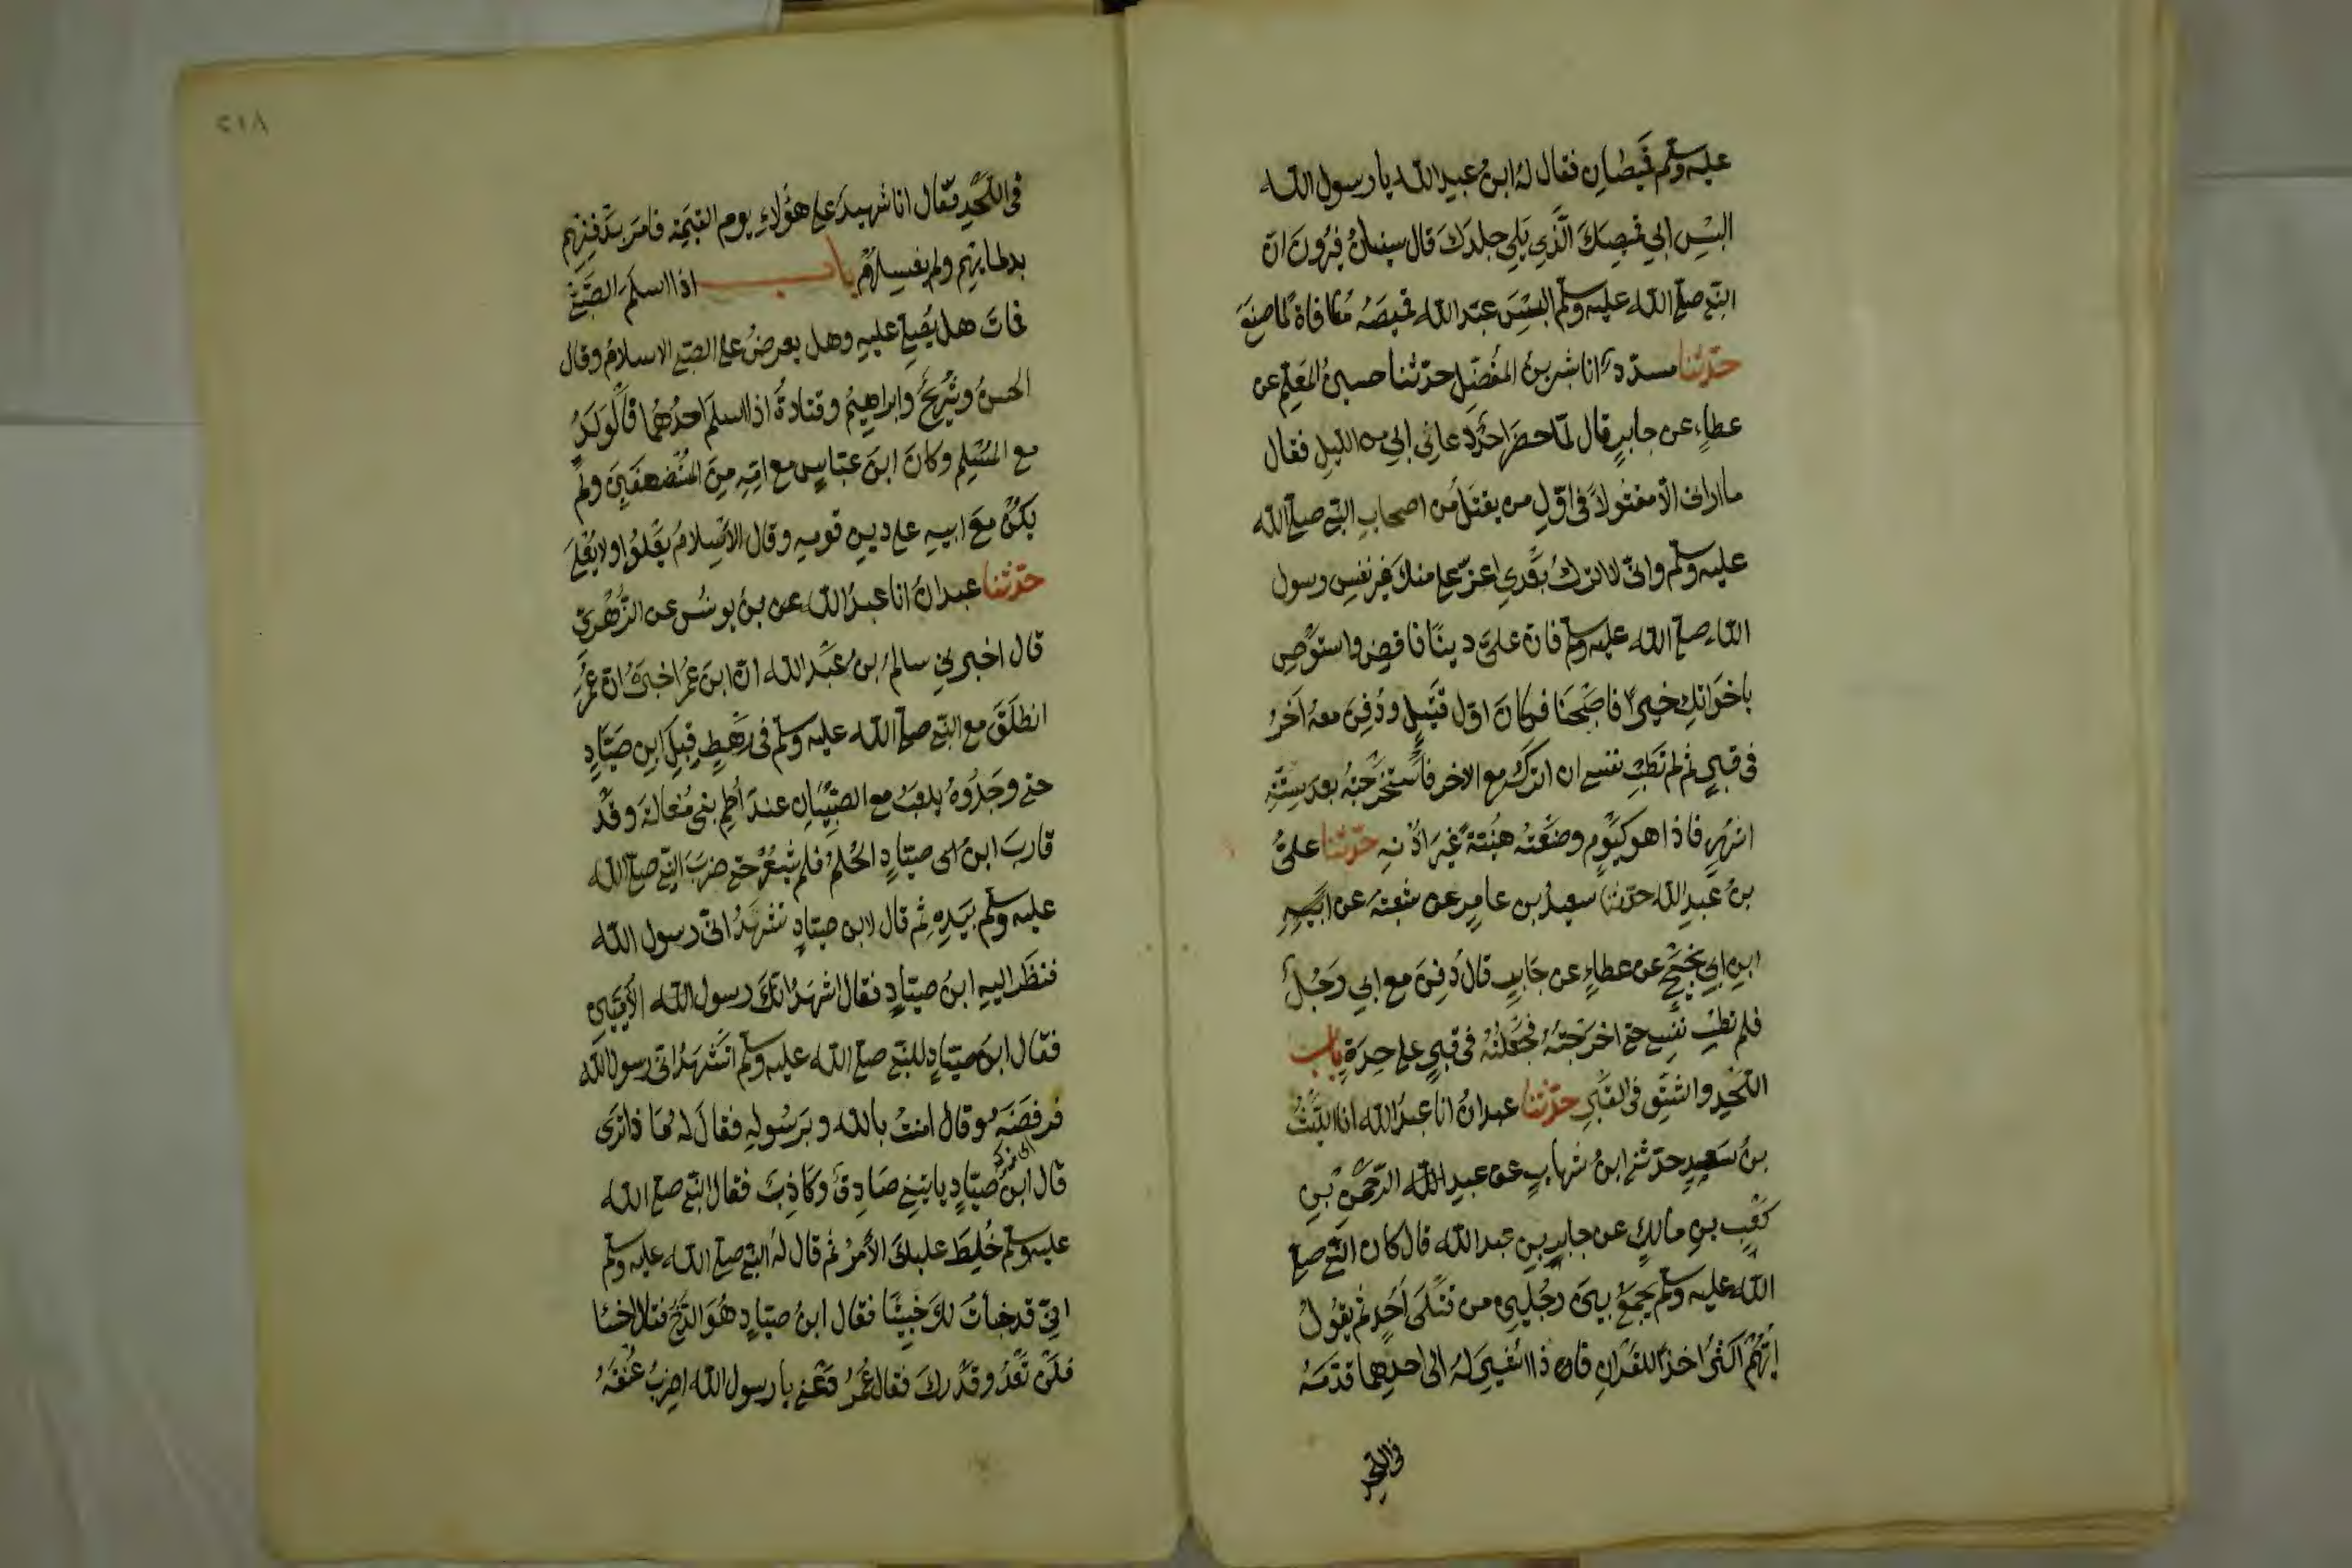 عليه وسلم قميصان فقال له ابن عبد الله يا رسول الله
البس ابي قميصك الذي يلي جلدك قال سفين فيرون ان
النبي صلى الله عليه وسلم البس عبد الله قميصه مكافاة لما صنع
حدثنا مسدد انا بشر بن المفضل حدثنا حسين المعلم عن
عطاء عن جابر قال لما حضر احد دعاني ابي من الليل فقال
ما اراني الا مقتولا في اول من يقتل من اصحاب النبي صلى الله
عليه وسلم واني لا اترك بعدي اعز علي منك غير نفس رسول
الله صلى الله عليه وسلم فان علي دينا فاقض واستوص
باخواتك خيرا فاصبحنا فكان اول قتيل ودفن معه آخر
في قبر ثم لم تطب نفسي ان اتركه مع الاخر فاستخرجته بعد ستة
اشهر فاذا هو كيوم وضعته هنية غير اذنه حدثنا علي
بن عبد الله حدثنا سعيد بن عامر عن شعبة عن
ابن ابي نجيح عن عطاء عن جابر قال دفن مع ابي رجل
فلم تطب نفسي حتى اخرجته فجعلته في قبر على حدة باب
اللحد والشق في القبر حدثنا عبدان انا عبد الله انا الليث
بن سعيد حدثني ابن شهاب عن عبد الله الرحمن بن
كعب بن مالك عن جابر بن عبد الله قال كان النبي صلى
الله عليه وسلم يجمع بين رجلين من قتلى احد ثم يقول
ايهم اكثر اخذا للقران فاذا اشير له الى احدهما قدمه
في اللحد
٢١٨
في اللحد فقال انا شهيد على هؤلاء يوم القيمة فامر بدفنهم
بدمائهم ولم يغسلهم باب اذا اسلم الصبي
فمات هل يصلى عليه وهل يعرض على الصبي الاسلام وقال
الحسن وشريح وابراهيم وقتادة اذا اسلم احدهما فالولد
مع المسلم وكان ابن عباس مع امه من المستضعفين ولم
يكن مع ابيه على دين قومه وقال الاسلام يعلوا ولا يعلى
حدثنا عبدان انا عبد الله عن بن يونس عن الزهري
قال اخبرني سالم بن عبد الله ان ابن عمر اخبره ان عمر
انطلق مع النبي صلى الله عليه وسلم في رهط قبل ابن صياد
حتى وجدوه يلعب مع الصبيان عند اطم بني مغالة وقد
قارب ابن ابى صياد الحلم فلم يشعر حتى ضرب النبي صلى الله
عليه وسلم بيده ثم قال لابن صياد تشهد اني رسول الله
فنظر اليه ابن صياد فقال اشهد انك رسول الله الاميين
فقال ابن صياد للنبي صلى الله عليه وسلم اتشهد اني رسول الله
فرفضه وقال امنت بالله وبرسوله فقال له ما ذا ترى
قال ابن صياد ياتيني صادق وكاذب فقال النبي صلى الله
عليه وسلم خلط عليك الامر ثم قال له النبي صلى الله عليه وسلم
اني قد خبأت لك خبيئا فقال ابن صياد هو الدخ فقال اخسا
فلن تعد وقدرك فقال عمر دعني يا رسول الله اضرب عنقه